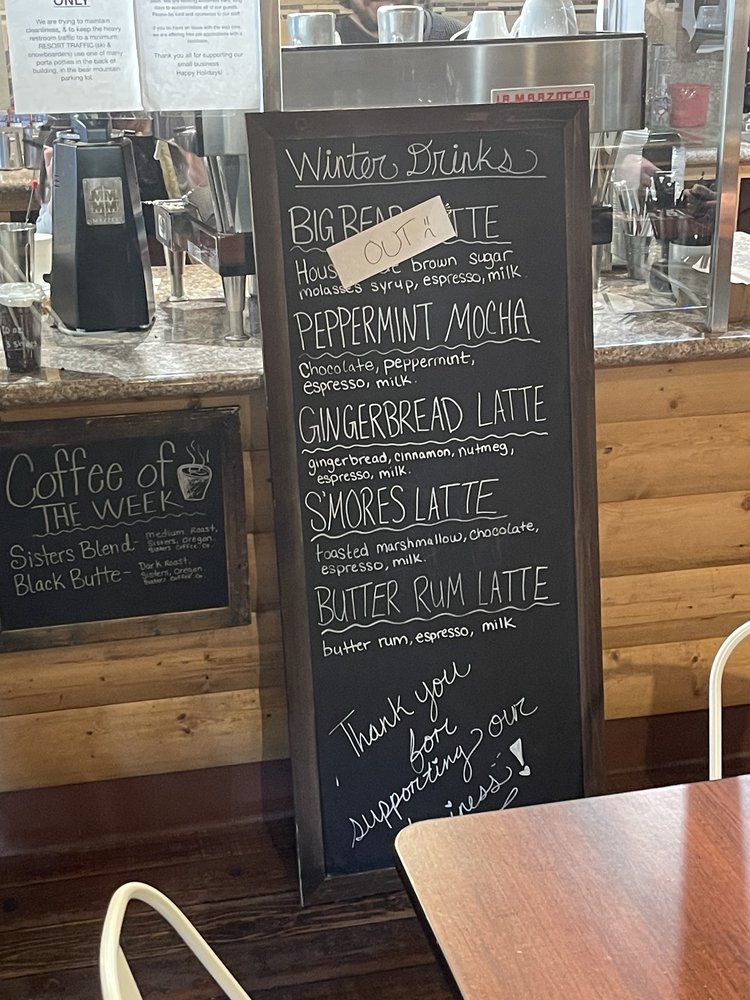 ONLY
We are trying to maintain
cleanliness, & to keep the heavy
restroom traffic to a minimum.
RESORT TRAFFIC (ski &
snowboarders) use one of many
porta potties in the back of
building, in the bear mountain
parking lot.
Please be kind and courteous to our staff.
Thank you all for supporting our
small business
Happy Holidays!
LA MARZOCCO
Winter Drinks
BIG BEAR LATTE
OUT
brown sugar
molasses syrup, espresso, milk
PEPPERMINT MOCHA
Chocolate, peppermint,
espresso, milk.
GINGERBREAD LATTE
gingerbread, cinnamon, nutmeg,
espresso, milk.
S'MORES LATTE
toasted marshmallow, chocolate,
espresso, milk.
BUTTER RUM LATTE
butter rum, espresso, milk
Thank you
for
supporting our
business!
Coffee of
THE WEEK
Sisters Blend- Medium Roast,
Sisters, Oregon.
Sisters Coffee Co.
Black Butte- Dark Roast.
Sisters, Oregon.
Sisters Coffee Co.